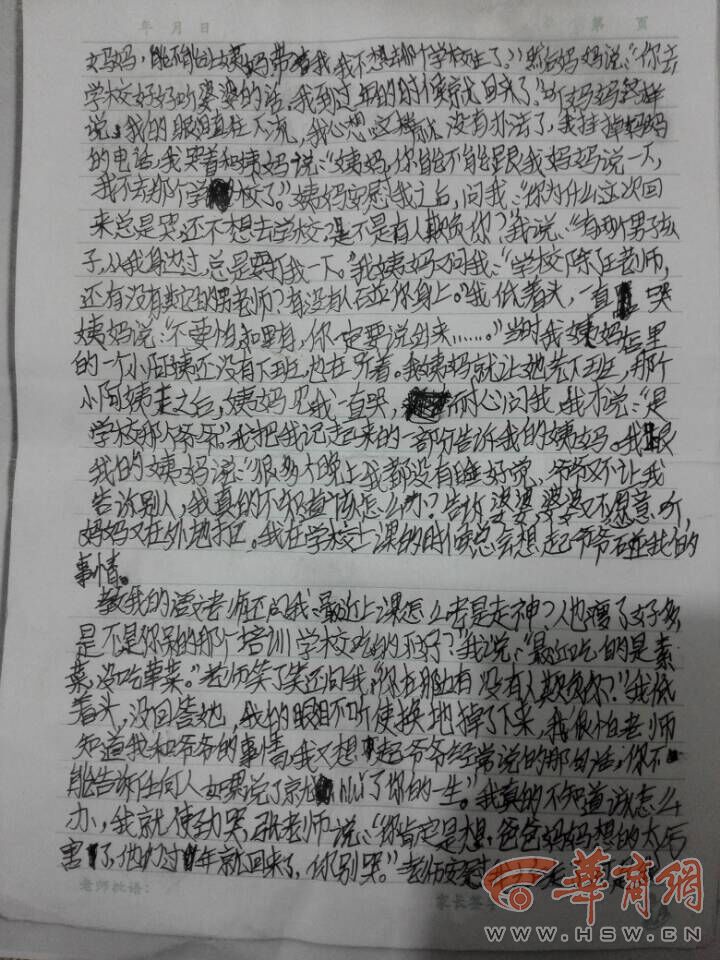 年 月 日 第 页
妈妈，能不能让姨妈带着我，我不想去那个学校住了？”然后妈妈说：“你去
学校好好听婆婆的话，我到过年的时候就回来了。”听妈妈这样
说，我的眼泪直往下流，我心想这样 没有办法了，我挂掉妈妈
的电话，我哭着和姨妈说：“姨妈，你能不能跟我妈妈说一下，
我不去那个学校了。”姨妈安慰我之后，问我：“你为什么这次回
来总是哭，还不想去学校，是不是有人欺负你？”我说：“有两个男孩
子，从我身边过，总是要打我一下。”我姨妈又问我：“学校除了王老师，
还有没有其它的男老师？有没有人碰你身上。”我低着头，一直 哭
姨妈说：“不要怕 你一定要说出来……。”当时我姨妈店里
的一个小阿姨还没有下班，也在听着。我姨妈就让她先下班，那个
小阿姨走之后，姨妈见我一直哭， 耐心问我，我才说：“是
学校那个爷爷”我把我记起来的一部份告诉我的姨妈。我跟
我的姨妈说：“很多个晚上我都没有睡好觉，爷爷又不让我
告诉别人，我真的不知道该怎么办？告诉婆婆，婆婆又不愿意听，
妈妈又在外地打工。我在学校上课的时候总会想起爷爷碰我的
事情。
教我的语文老师还问我：最近上课怎么老是走神？人也瘦了好多
是不是你呆的那个培训学校吃的不好？”我说：“最近吃的是素
菜，没吃荤菜。”老师笑了笑还问我：“你在那还有没有人欺负你？”我低
着头，没回答她，我的眼泪不听使换地掉了下来，我很怕老师
知道我和爷爷的事情，我又想起爷爷经常说的那句话：你不
能告诉任何人 要说了就 了你的一生。”我真的不知道该怎么
办，我就使劲哭，张老师说：“你肯定是想，爸爸妈妈想的太厉
害了，他们过年就回来了，你别哭。”老师安慰
老师批语： 家长签
华商网
WWW.HSW.CN